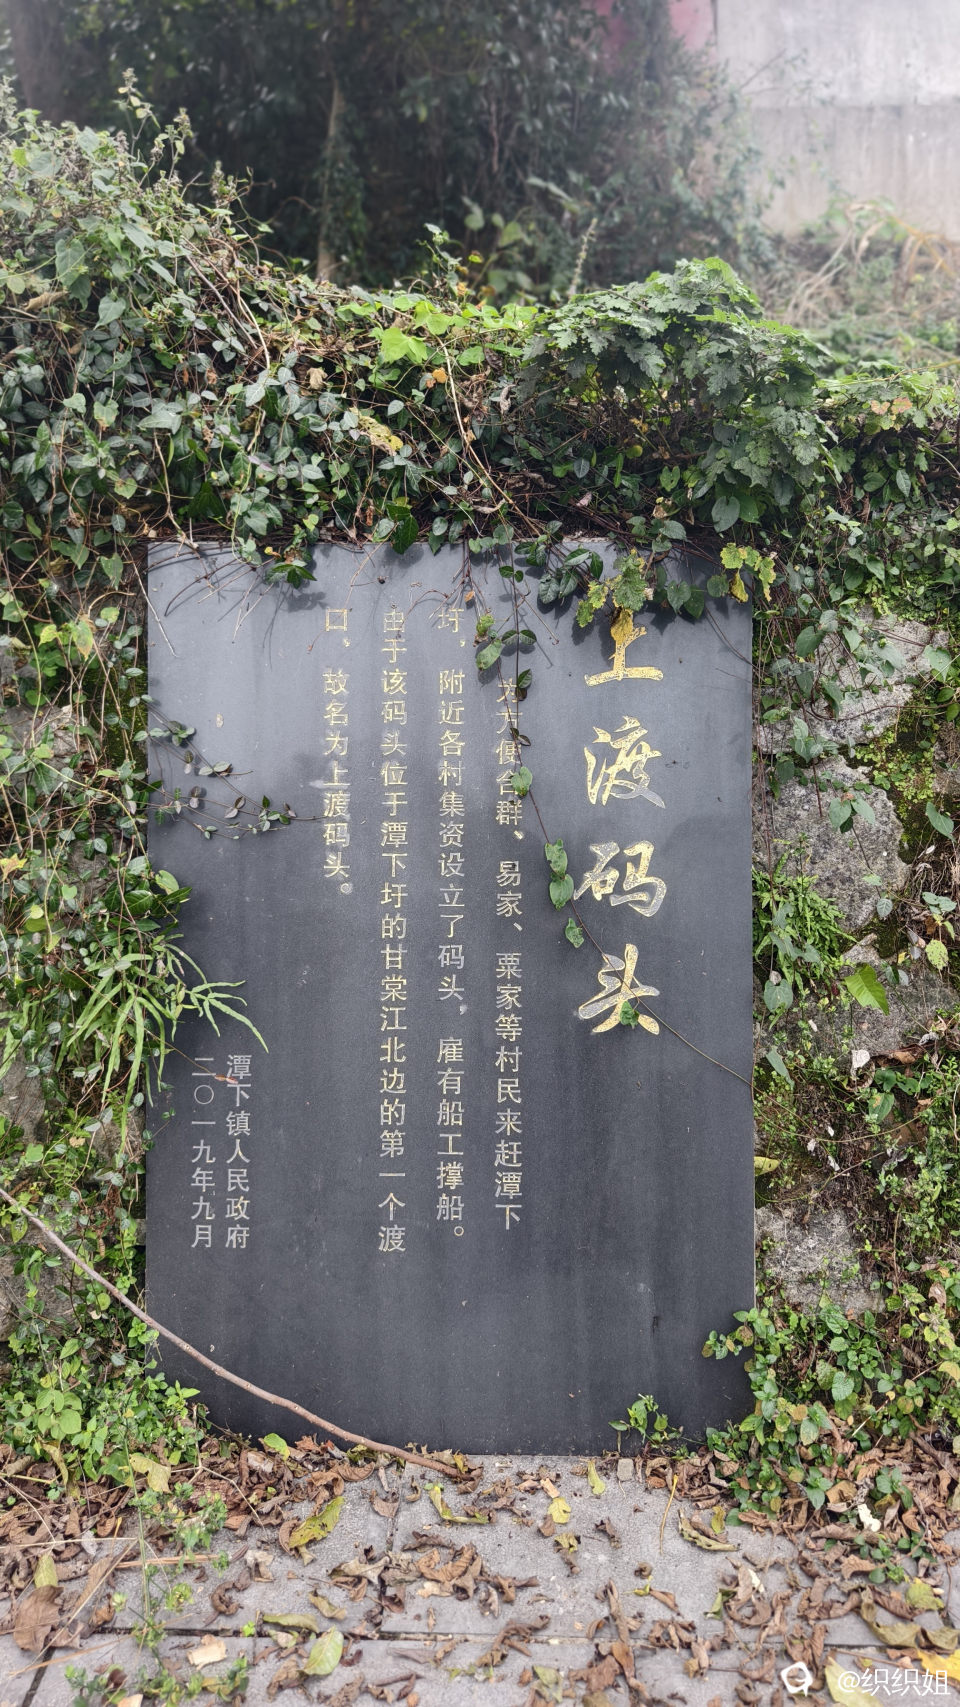 上渡码头
为方便合群、易家、粟家等村民来赶潭下
圩，附近各村集资设立了码头，雇有船工撑船。
由于该码头位于潭下圩的甘棠江北边的第一个渡
口，故名为上渡码头。
潭下镇人民政府
二〇一九年九月
@织织姐